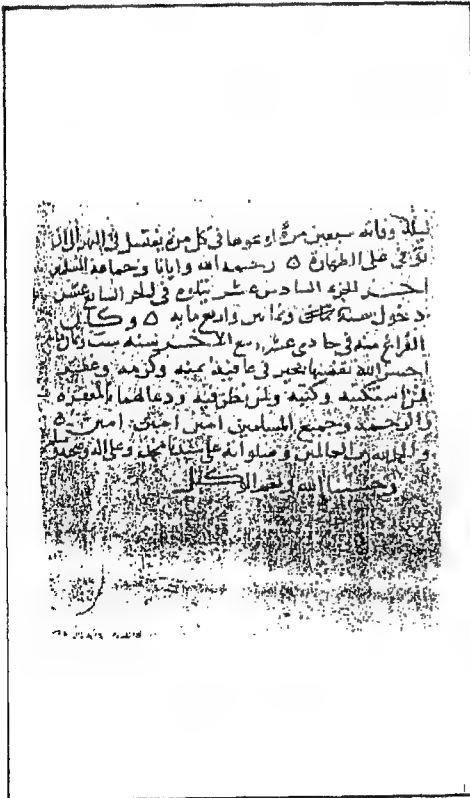 ليلة وفاته سبعين مرة او نحوها في كل مرة يغتسل في النهر الى ان
توفي على الطهارة ه رحمه الله وايانا وجماعة المسلمين
اخر الجزء السادس عشر يتلوه في الجزء السابع عشر
دخول سنة وثمانين واربع مايه ه وكان
الفراغ منه في حادي عشر ربيع الاخر سنة ست
احسن الله تقضيها بخير في عافية بمنه وكرمه وغفر
لمن استكتبه وكتبه ولمن نظر فيه ودعا لهما بالمغفرة
والرحمة وجميع المسلمين امين امين امين ه
والحمد لله رب العالمين وصلواته على سيدنا محمد وعلى اله وصحبه
وحسبنا الله ونعم الوكيل